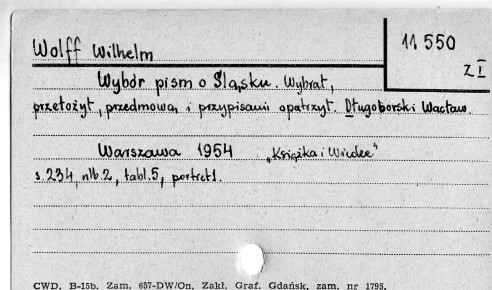 Wolff Wilhelm
11 550
Z I
Wybór pism o Śląsku. Wybrał,
przełożył, przedmową i przypisami opatrzył. Długoborski Wacław.
Warszawa 1954 „Książka i Wiedza"
s. 234, nlb. 2, tabl. 5, portret 1.
CWD. B-15b. Zam. 657-DW/On. Zakł. Graf. Gdańsk, zam. nr 1795.